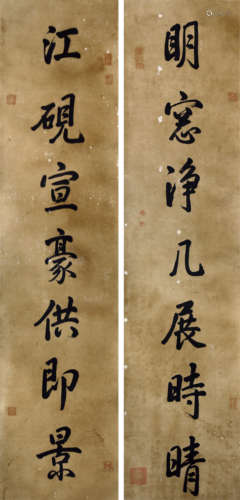 明窓淨几展時晴
江硯宣豪供即景